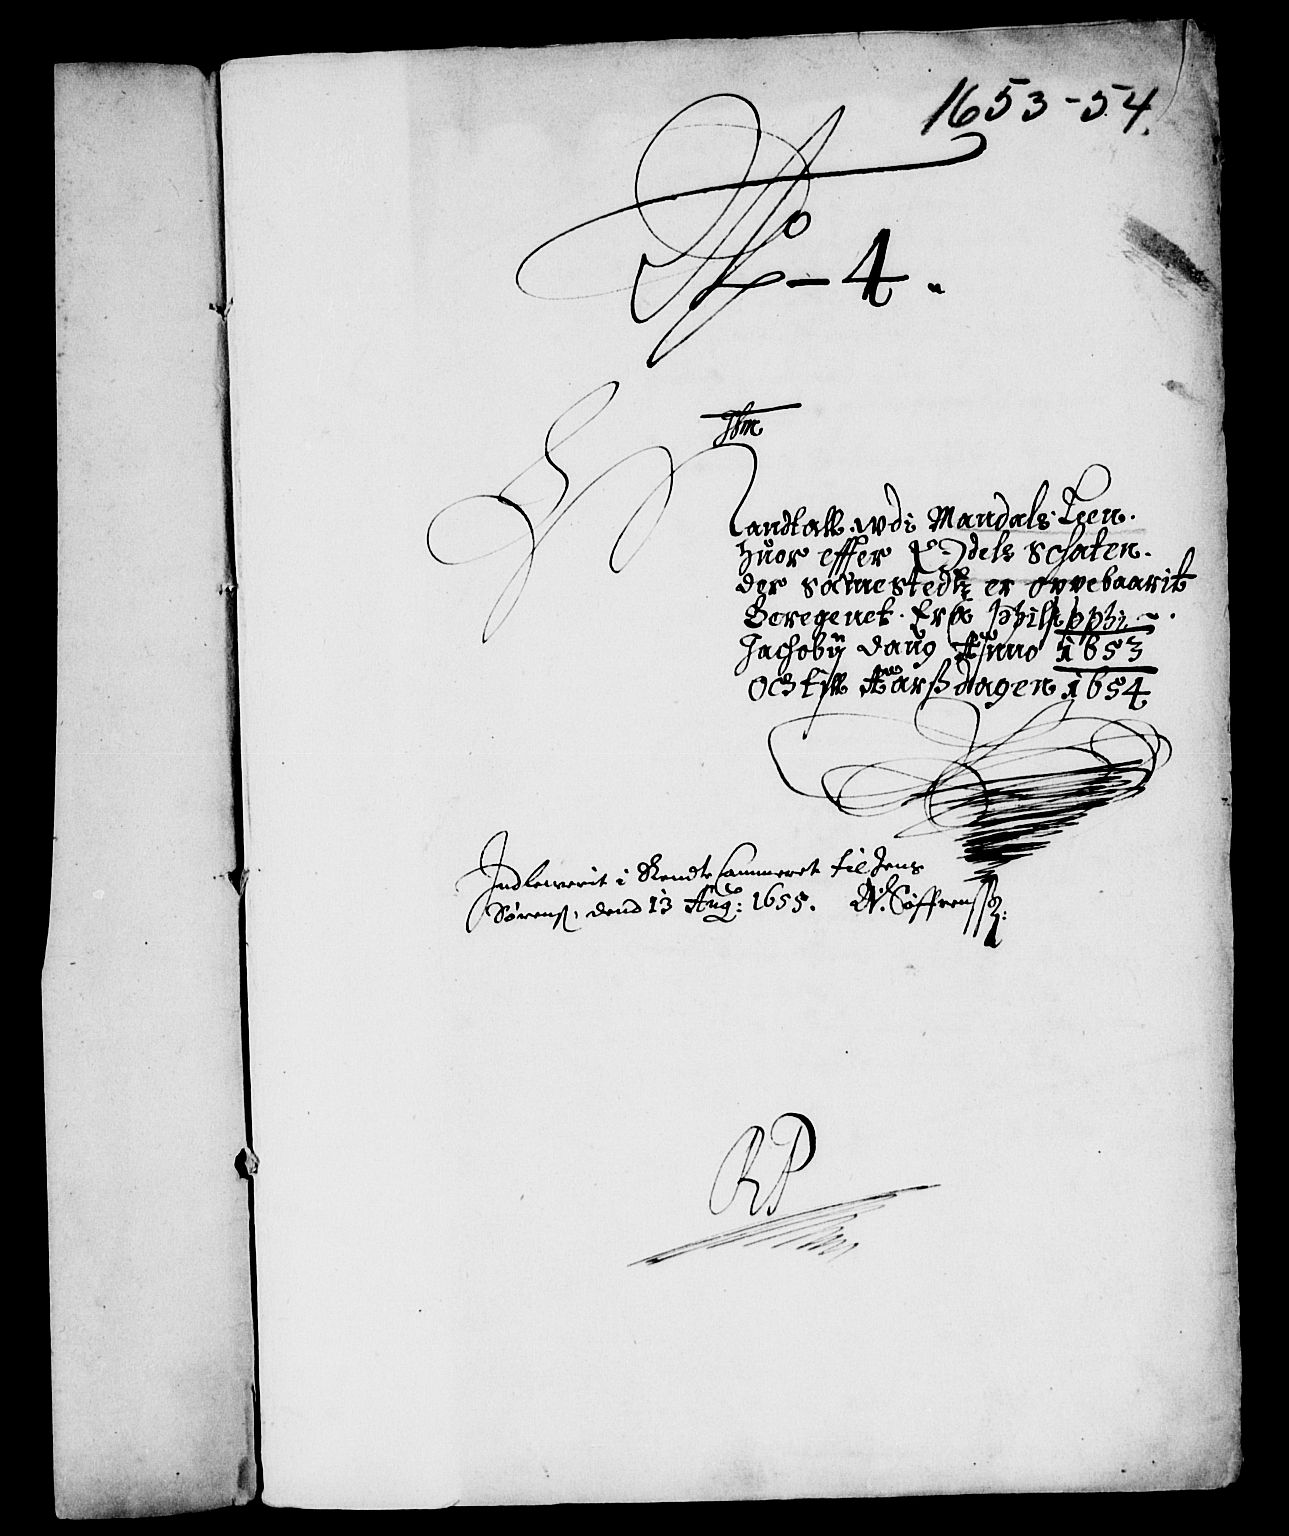 1653-54.
No - 4.
Mandtall wdi Mandals Leen.
huor effter Rixdels schaten.
der sammestedtz er oppebaarit
Beregenet. Fra Philippi
Jachobij daug Anno 1653
och till Aarsz dagen 1654
Indleuerit i Rendte Cammeret til Jens
Sørensz, dend 13 Aug: 1655. N. Søffrensz:
RP